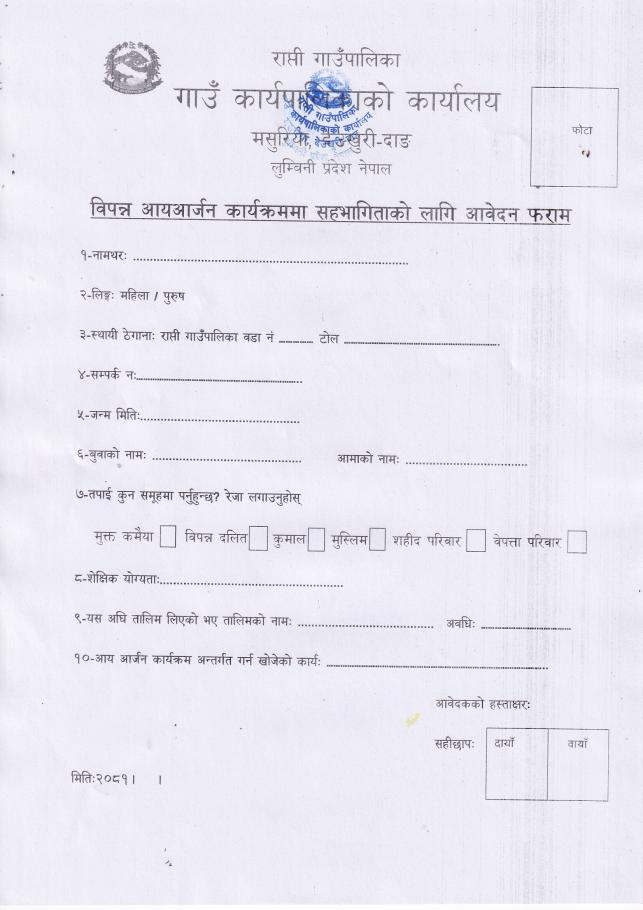 राप्ती गाउँपालिका
गाउँ कार्यपालिकाको कार्यालय
मसुरिया, देउखुरी-दाङ
लुम्बिनी प्रदेश नेपाल
फोटो
विपन्न आयआर्जन कार्यक्रममा सहभागिताको लागि आवेदन फराम
१-नामथरः ........................................................
२-लिङ्गः महिला / पुरुष
३-स्थायी ठेगानाः राप्ती गाउँपालिका वडा नं ........... टोल ................................................
४-सम्पर्क नः..................................................
५-जन्म मितिः..................................................
६-बुवाको नामः .............................................. आमाको नामः .....................................
७-तपाई कुन समूहमा पर्नुहुन्छ? रेजा लगाउनुहोस्
मुक्त कमैया विपन्न दलित कुमाल मुस्लिम शहीद परिवार वेपत्ता परिवार
८-शेक्षिक योग्यताः........................................................
९-यस अघि तालिम लिएको भए तालिमको नामः .......................................... अवधिः ............................
१०-आय आर्जन कार्यक्रम अन्तर्गत गर्न खोजेको कार्यः ....................................................................
आवेदकको हस्ताक्षरः
सहीछापः दायाँ वायाँ
मितिः२०८१। ।